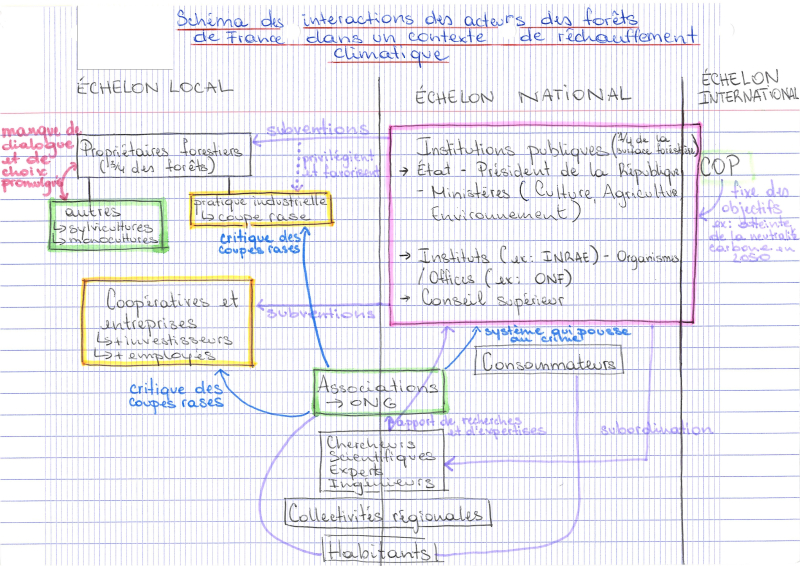 Schéma des interactions des acteurs des forêts
de France dans un contexte de réchauffement
climatique
ÉCHELON LOCAL
ÉCHELON NATIONAL
ÉCHELON
INTERNATIONAL
manque de
dialogue
et de
choix
promulgués
Propriétaires forestiers
(3/4 des forêts)
subventions
privilégient
et favorisent
autres
↳ sylvicultures
↳ monocultures
pratique industrielle
↳ coupe rase
critique des
coupes rases
Institutions publiques (1/4 de la
surface forestière)
→ État - Président de la République
- Ministères (Culture, Agriculture,
Environnement)
→ Instituts (ex: INRAE) - Organismes
/Offices (ex: ONF)
→ Conseil supérieur
COP
fixe des
objectifs
ex: atteinte
de la neutralité
carbone en
2050
Coopératives et
entreprises
↳ + investisseurs
↳ + employés
subventions
critique des
coupes rases
système qui pousse
au crime
Consommateurs
Associations
→ ONG
rapport de recherches
et d'expertises
subordination
Chercheurs
Scientifiques
Experts
Ingénieurs
Collectivités régionales
Habitants